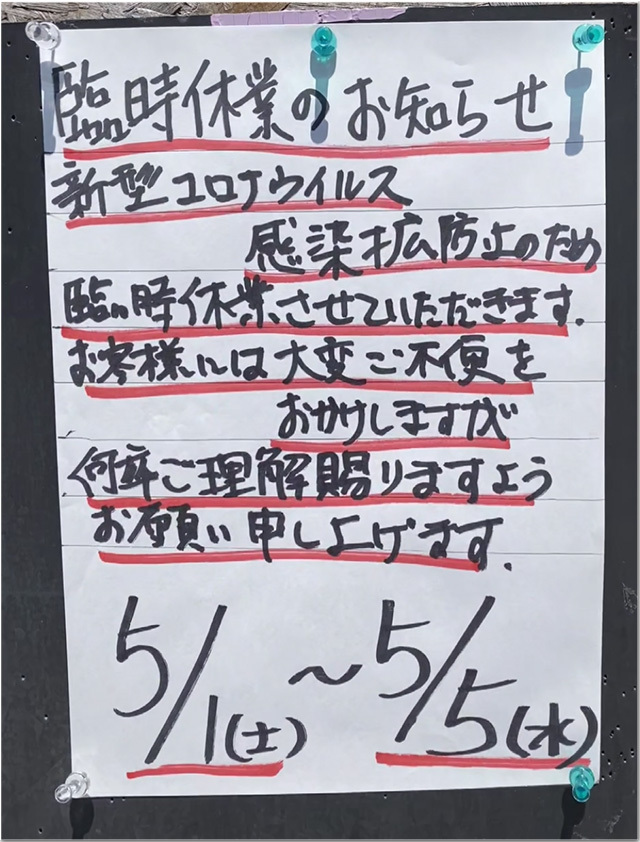 臨時休業のお知らせ
新型コロナウイルス
感染拡防止のため
臨時休業させていただきます.
お客様には大変ご不便を
おかけしますが
何卒ご理解賜りますよう
お願い申し上げます.
5/1(土)～5/5(水)